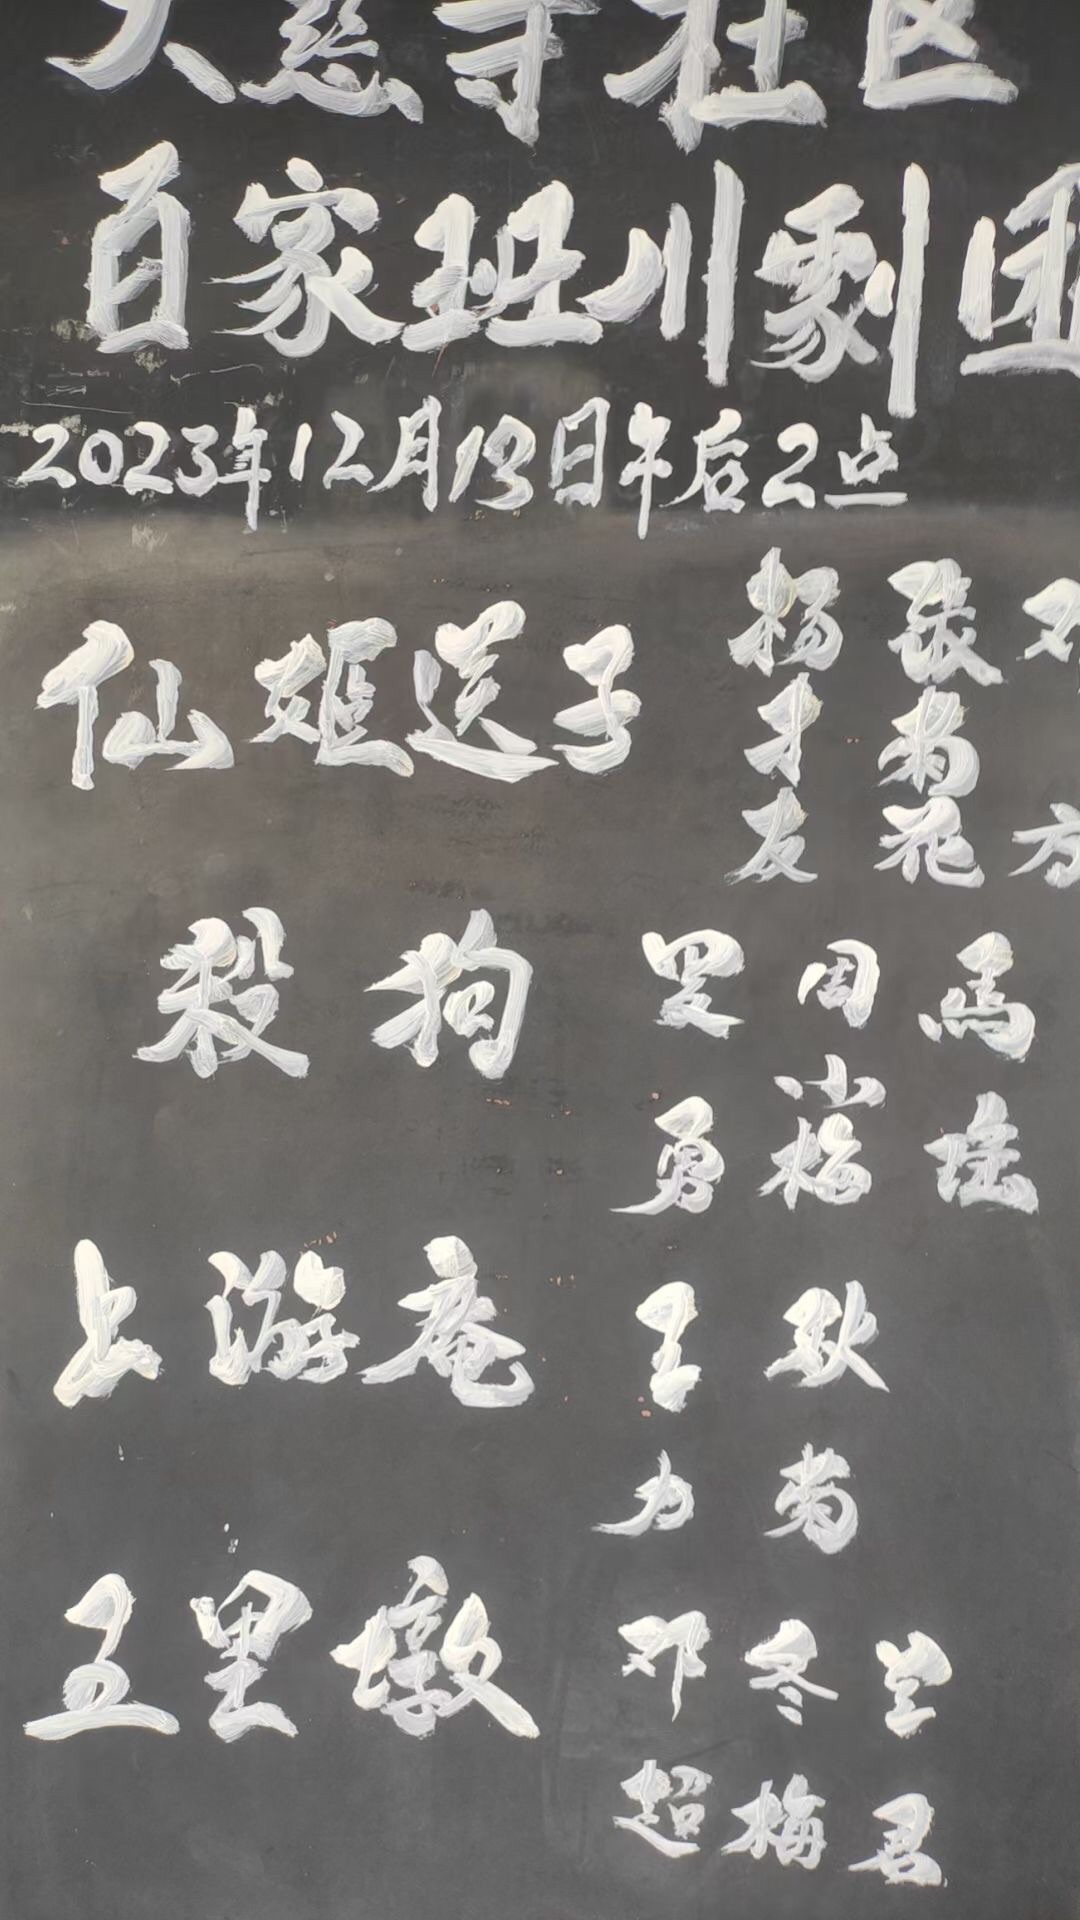 大慈寺社区
百家班川剧团
2023年12月13日午后2点
仙姬送子
杨才友
张菊花
邓 方
殺狗
罗勇
周小梅
馬瑶
上游庵
王力
耿菊
五里墩
邓超
冬梅
兰君